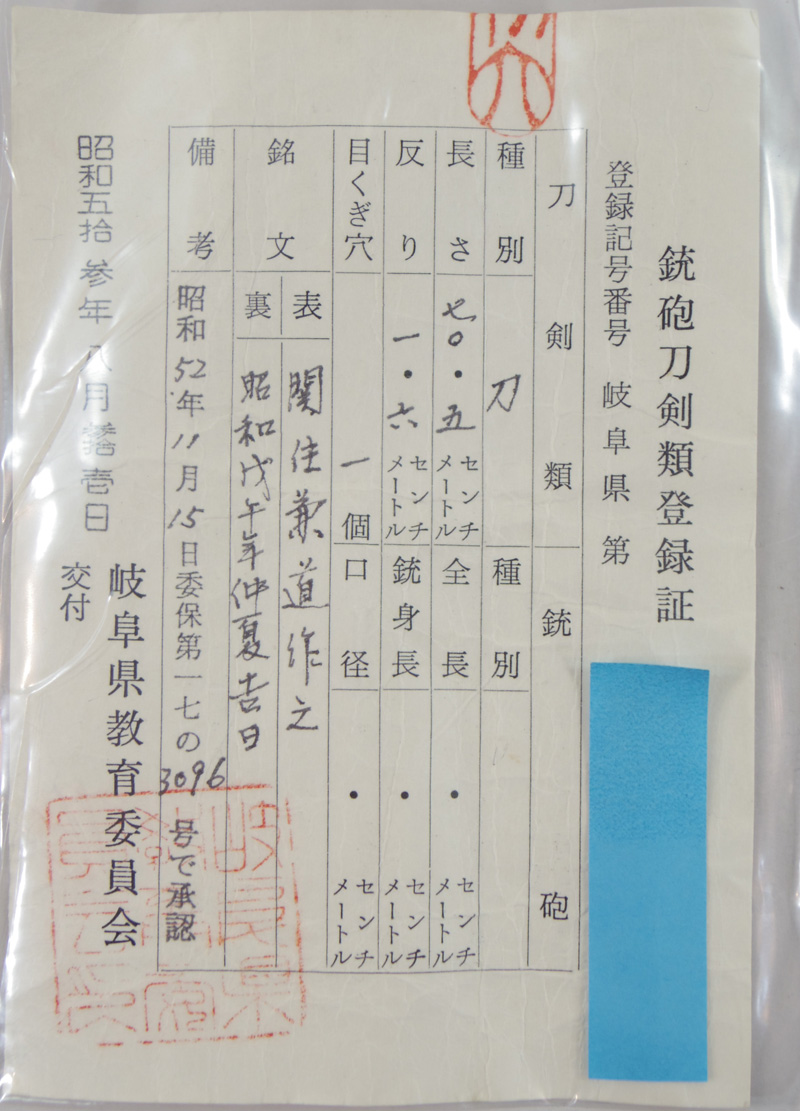 銃砲刀剣類登録証
登録記号番号 岐阜県 第
刀剣類 銃砲
種別 刀 種別
長さ 七〇・五センチメートル 全長 ・ センチメートル
反り 一・六センチメートル 銃身長 ・ センチメートル
目くぎ穴 一個 口径 ・ センチメートル
銘文 表 関住兼道作之
裏 昭和戊午年仲夏吉日
備考 昭和52年11月15日委保第一七の3096号で承認
岐阜県教育委員会
交付
昭和五拾参年八月拾壱日